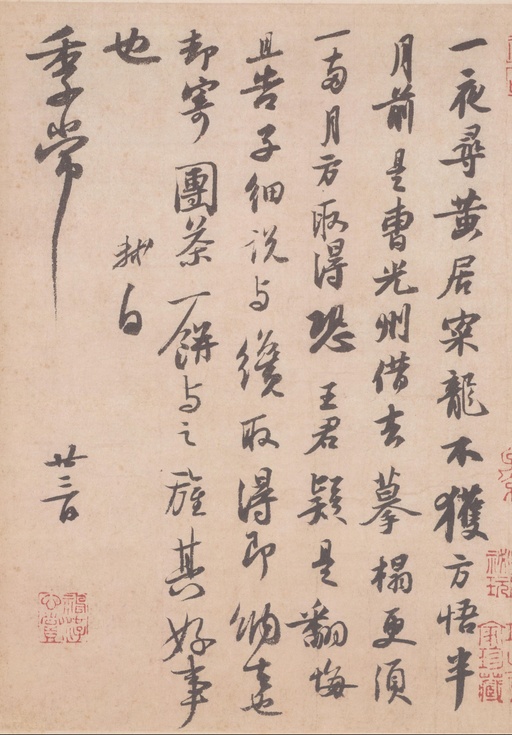 一夜尋黄居寀龍不獲方悟半
月前是曹光州借去摹搨更須
一兩月方取得恐王君疑是翻悔
且告子細説與纔取得即納去也
却寄團茶一餅與之旌其好事
也
軾白
季常
廿三日